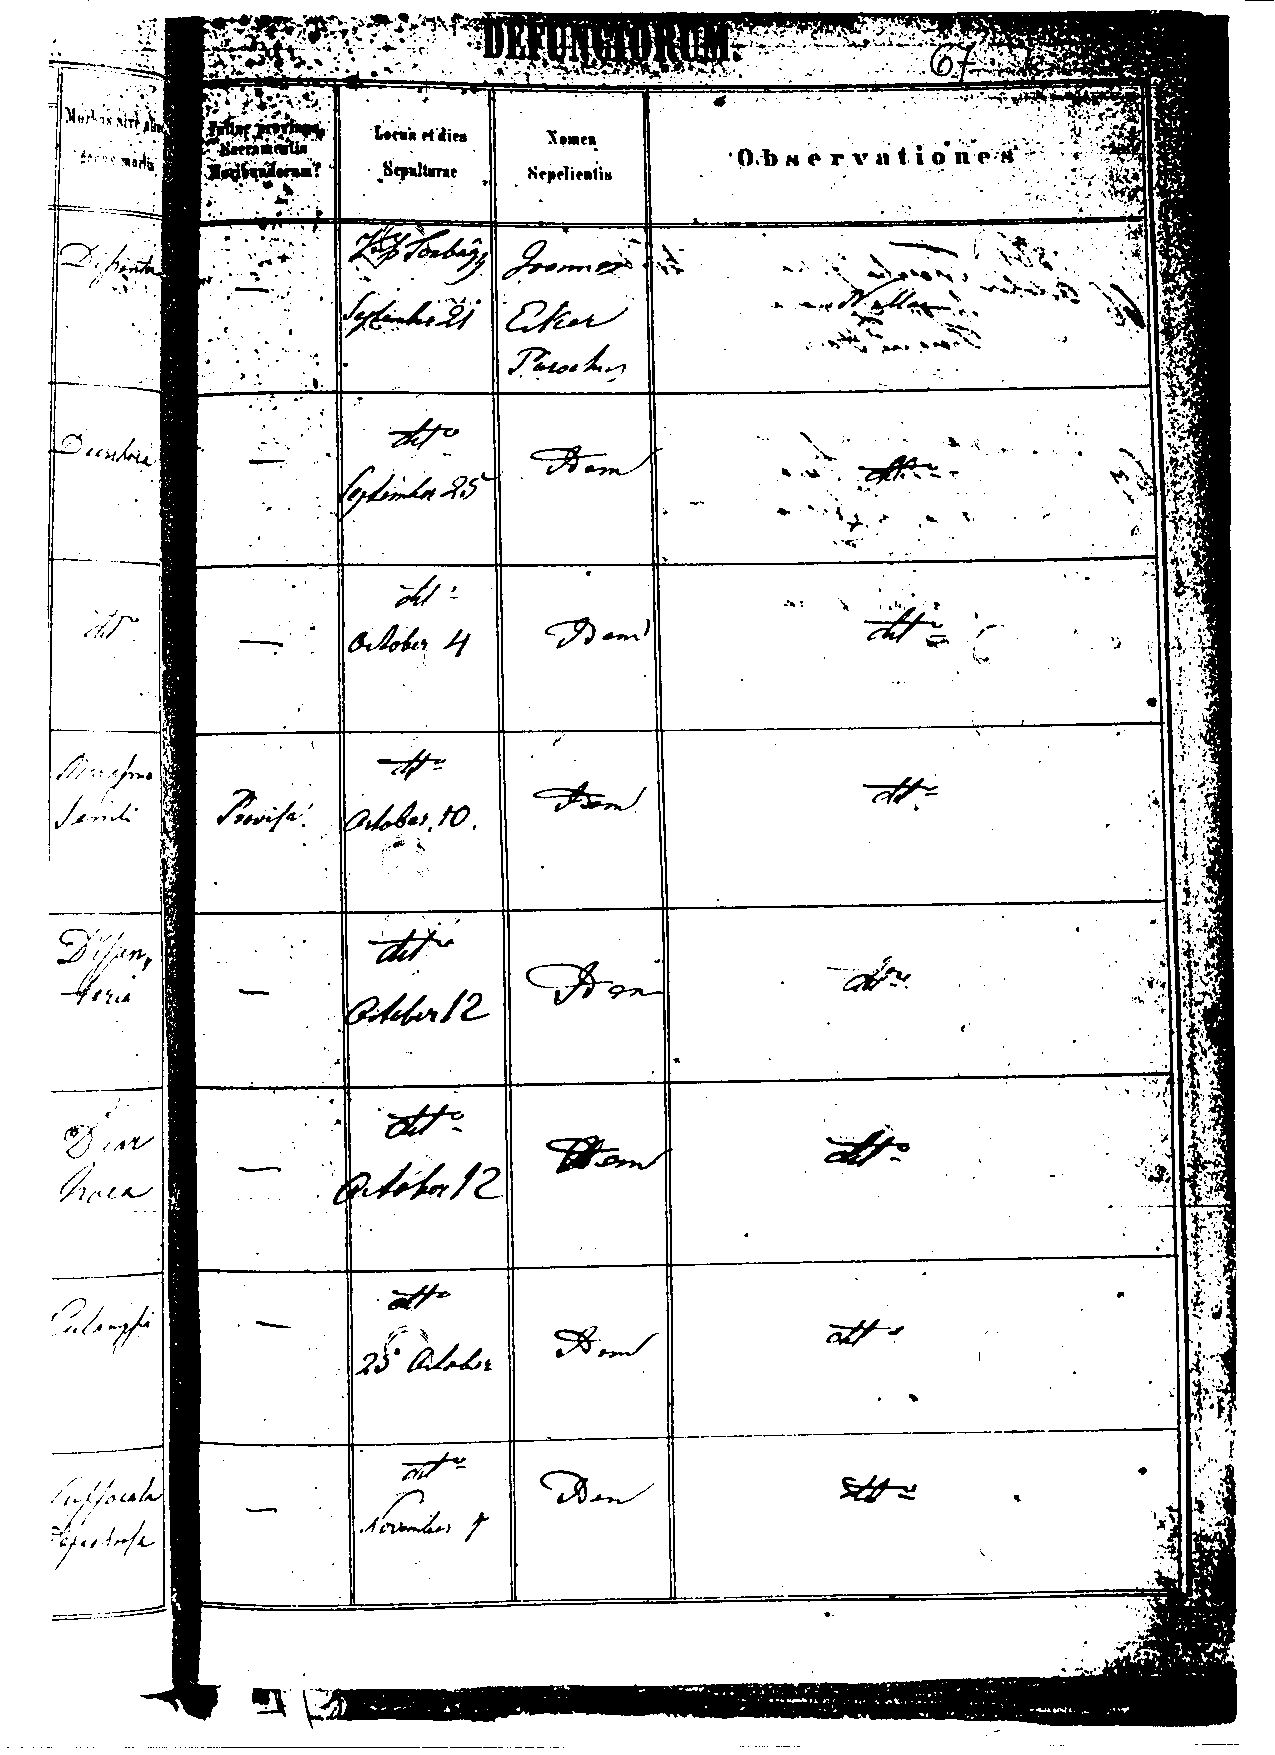 DEFUNCTORUM.
67
Morbus sive aliud
genus mortis
Suntne provisus
Sacramentis
Moribundorum?
Locus et dies
Sepulturae
Nomen
Sepelientis
Observationes
—
September 21
Joannes
Eker
Parochus
Nullae
—
dtto
September 25
Idem
dtto
dtto
—
dtto
October 4
Idem
dtto
Senili
Provisa.
dtto
October 10.
Idem
dtto
Dysen,
teria
—
dtto
October 12
Idem
dtto
Diar
rhoea
—
dtto
October 12
Idem
dtto
—
dtto
25 October
Idem
dtto
Suffocata
—
dtto
November
Idem
dtto